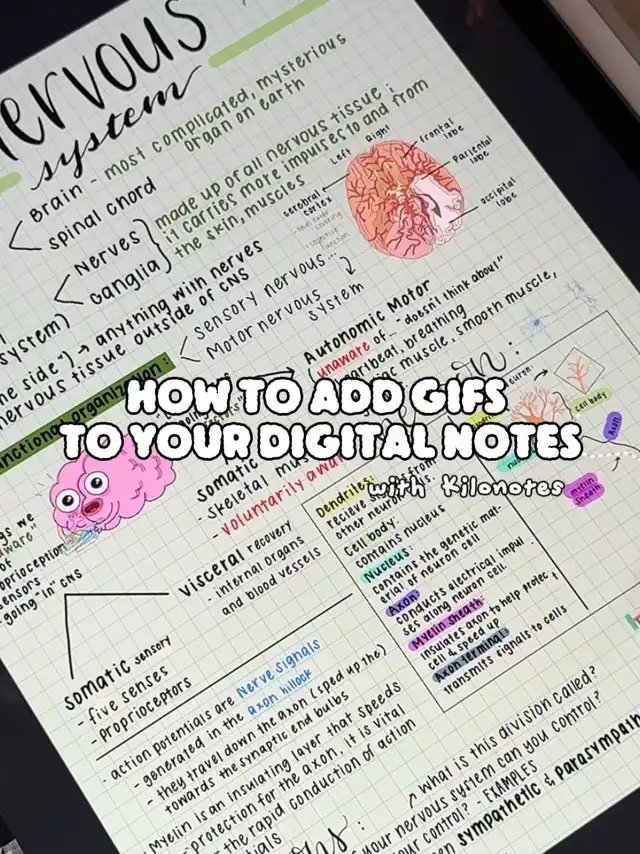 nervous
system
Brain - most complicated, mysterious
organ on earth
spinal chord
Nerves
Ganglia
made up of all nervous tissue;
it carries more impulses to and from
the skin, muscles
Left Right
Frontal
lobe
Parietal
lobe
occipital
lobe
cerebral
cortex
system)
"one side") → anything with nerves
nervous tissue outside of CNS
Sensory nervous...
Motor nervous
system
Functional organization:
Autonomic Motor
(unaware of - "doesn't think about"
heartbeat, breathing
muscle, smooth muscle,
HOW TO ADD GIFS
TO YOUR DIGITAL NOTES
with Kilonotes
neuron
cell body
Axon
myelin
sheath
somatic
- skeletal
- voluntarily
Visceral recovery
- internal organs
and blood vessels
Dendrites:
recieve from
other neurons
Cell body:
contains nucleus
Nucleus:
contains the genetic mat-
erial of neuron cell
Axon:
conducts electrical impul
ses along neuron cell
Myelin sheath:
insulates axon to help protect
cell & speed up
Axon terminal:
transmits signals to cells
of
proprioception
sensors
- "going "in" CNS
somatic sensory
- five senses
- proprioceptors
- action potentials are Nerve signals
- generated in the axon hillock
- they travel down the axon (sped up the)
towards the synaptic end bulbs
- Myelin is an insulating layer that speeds
- protection for the axon, it is vital
- the rapid conduction of action
what is this division called?
your nervous system can you control?
your control? - EXAMPLES
sympathetic & parasympath